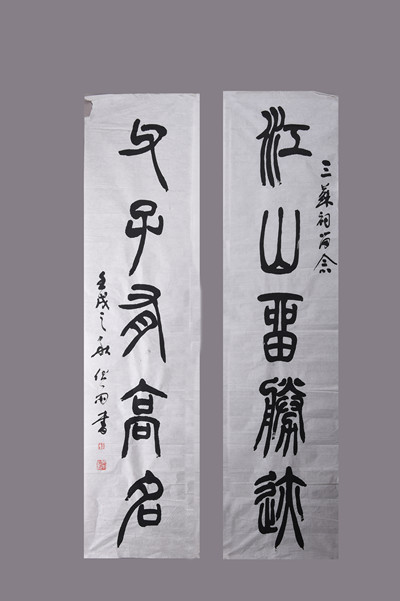 江山留勝迹
三蘇祠留念
父子有高名
壬戌之秋 書